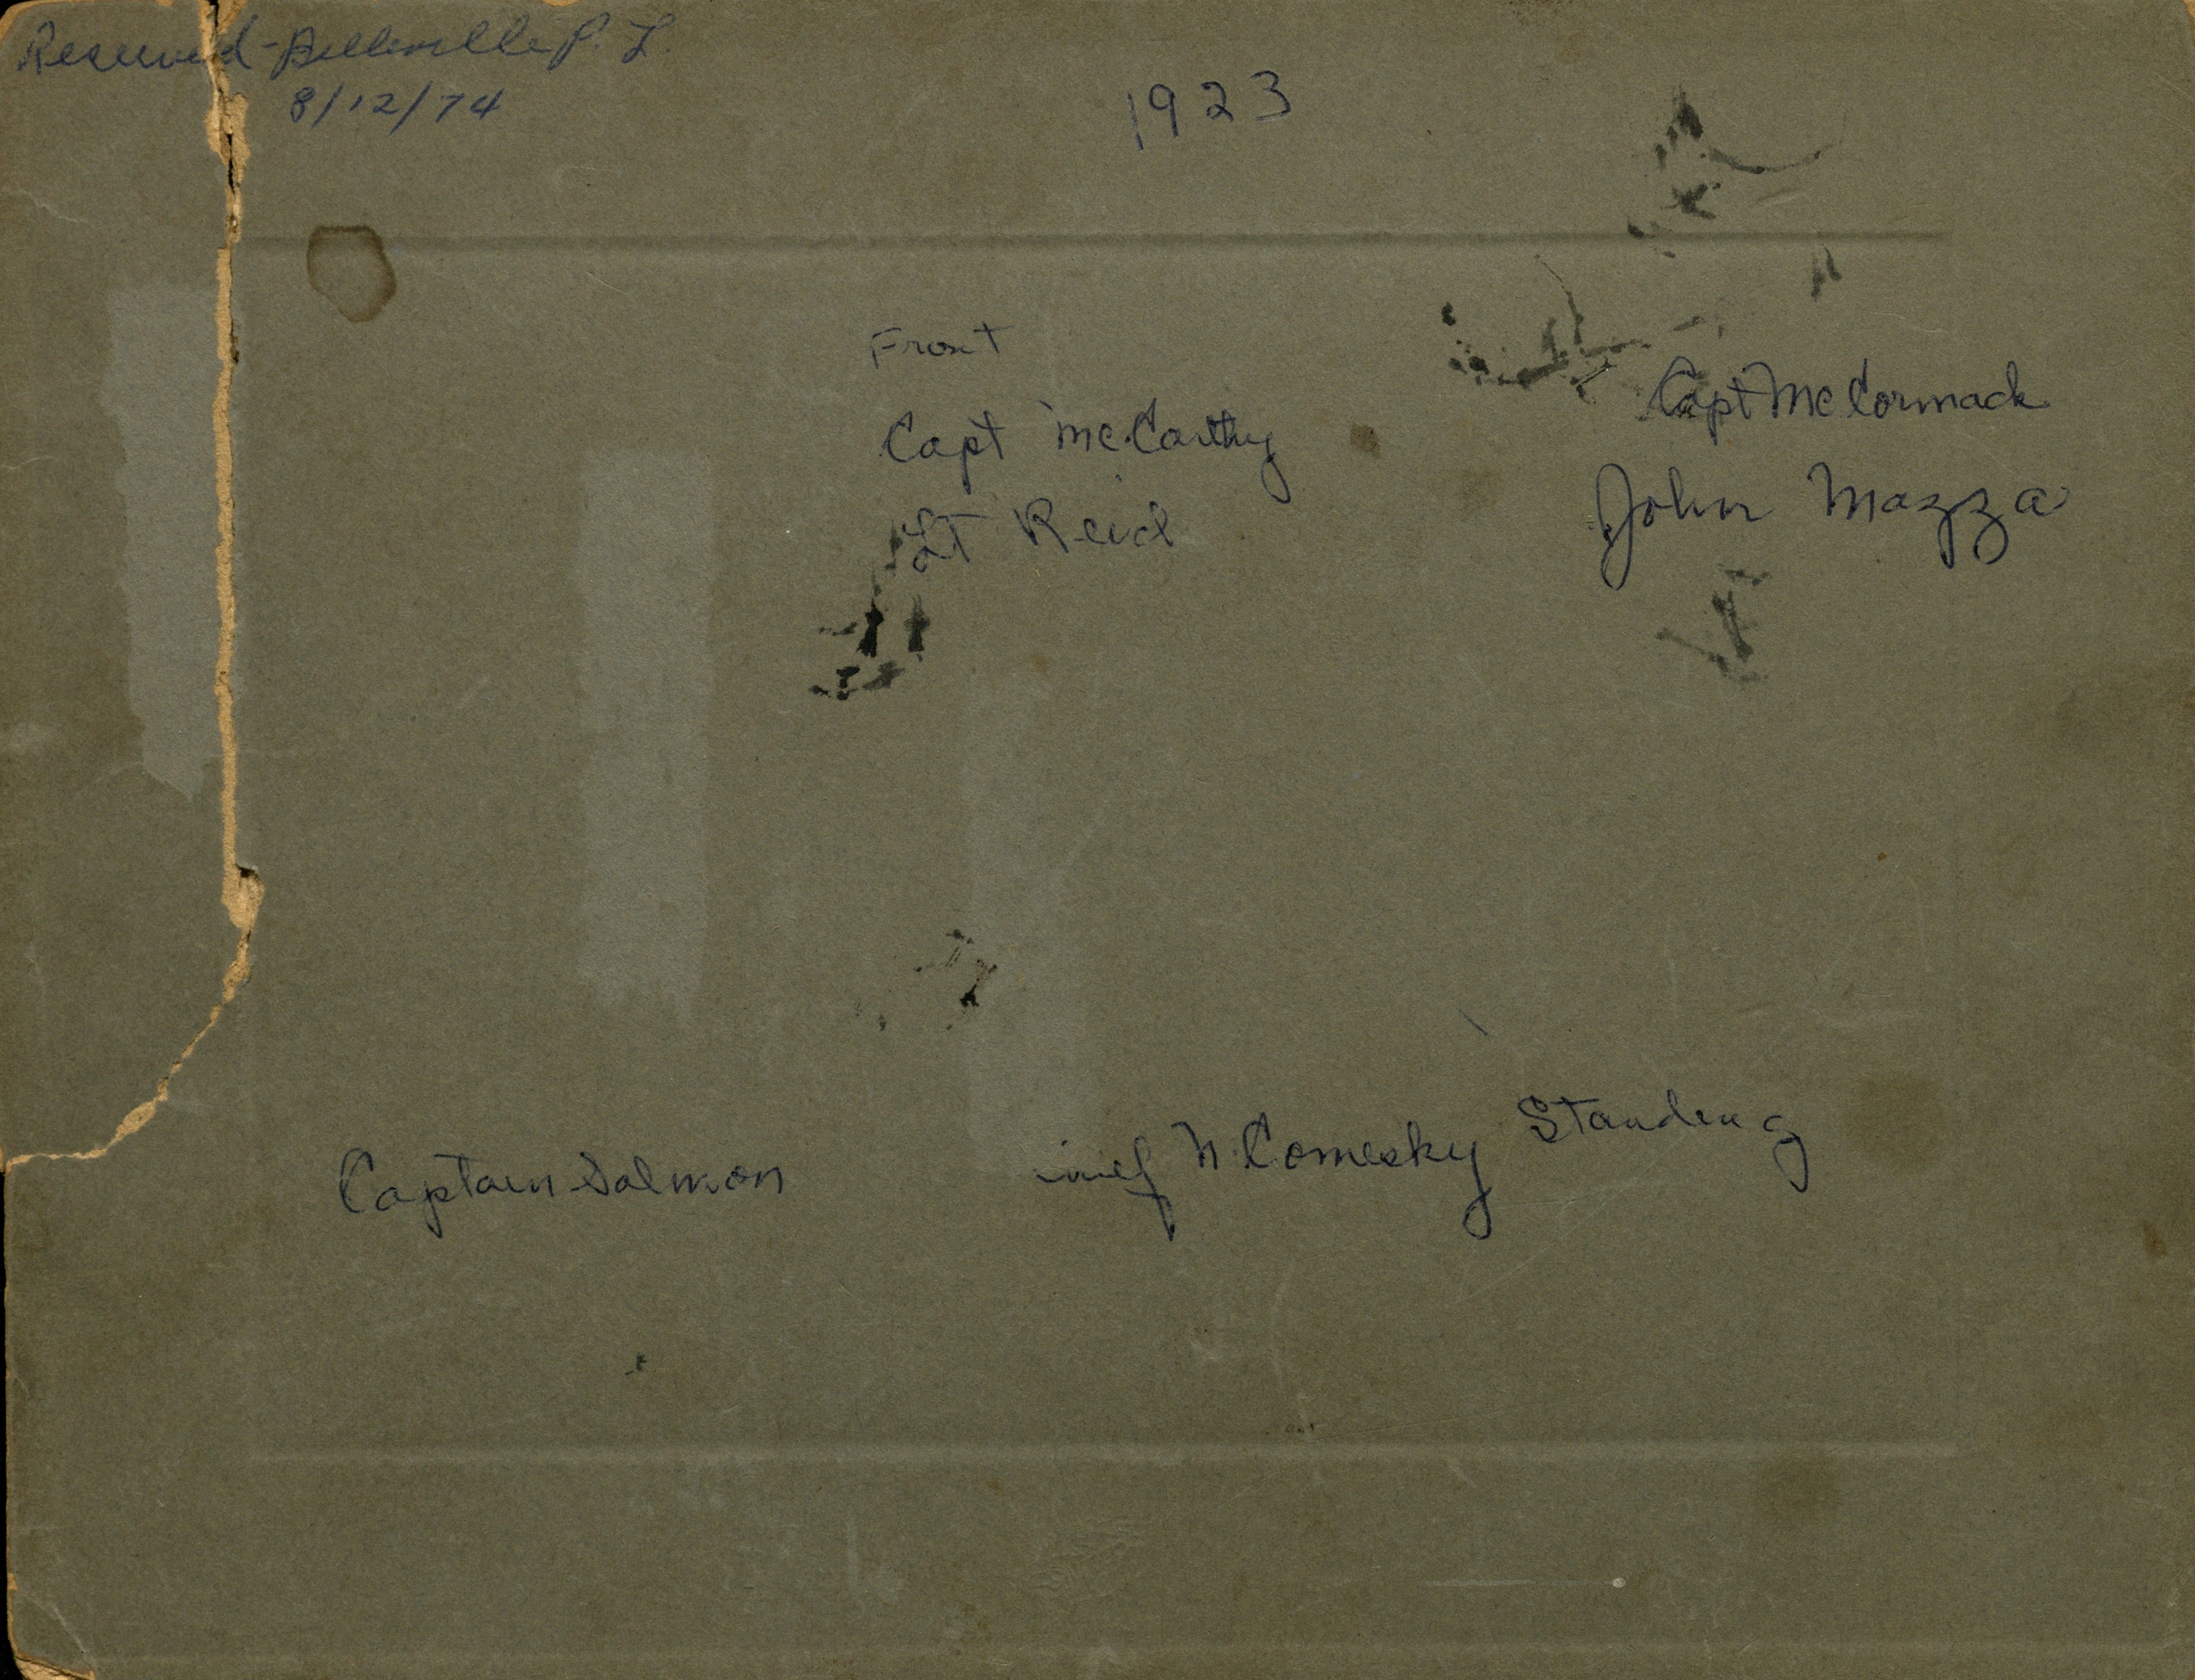 Received - Belleville P. L.
8/12/74
1923
Front
Capt McCarthy
Lt Reid
Capt McCormack
John Mazza
Captain Salmon
Comesky Standing